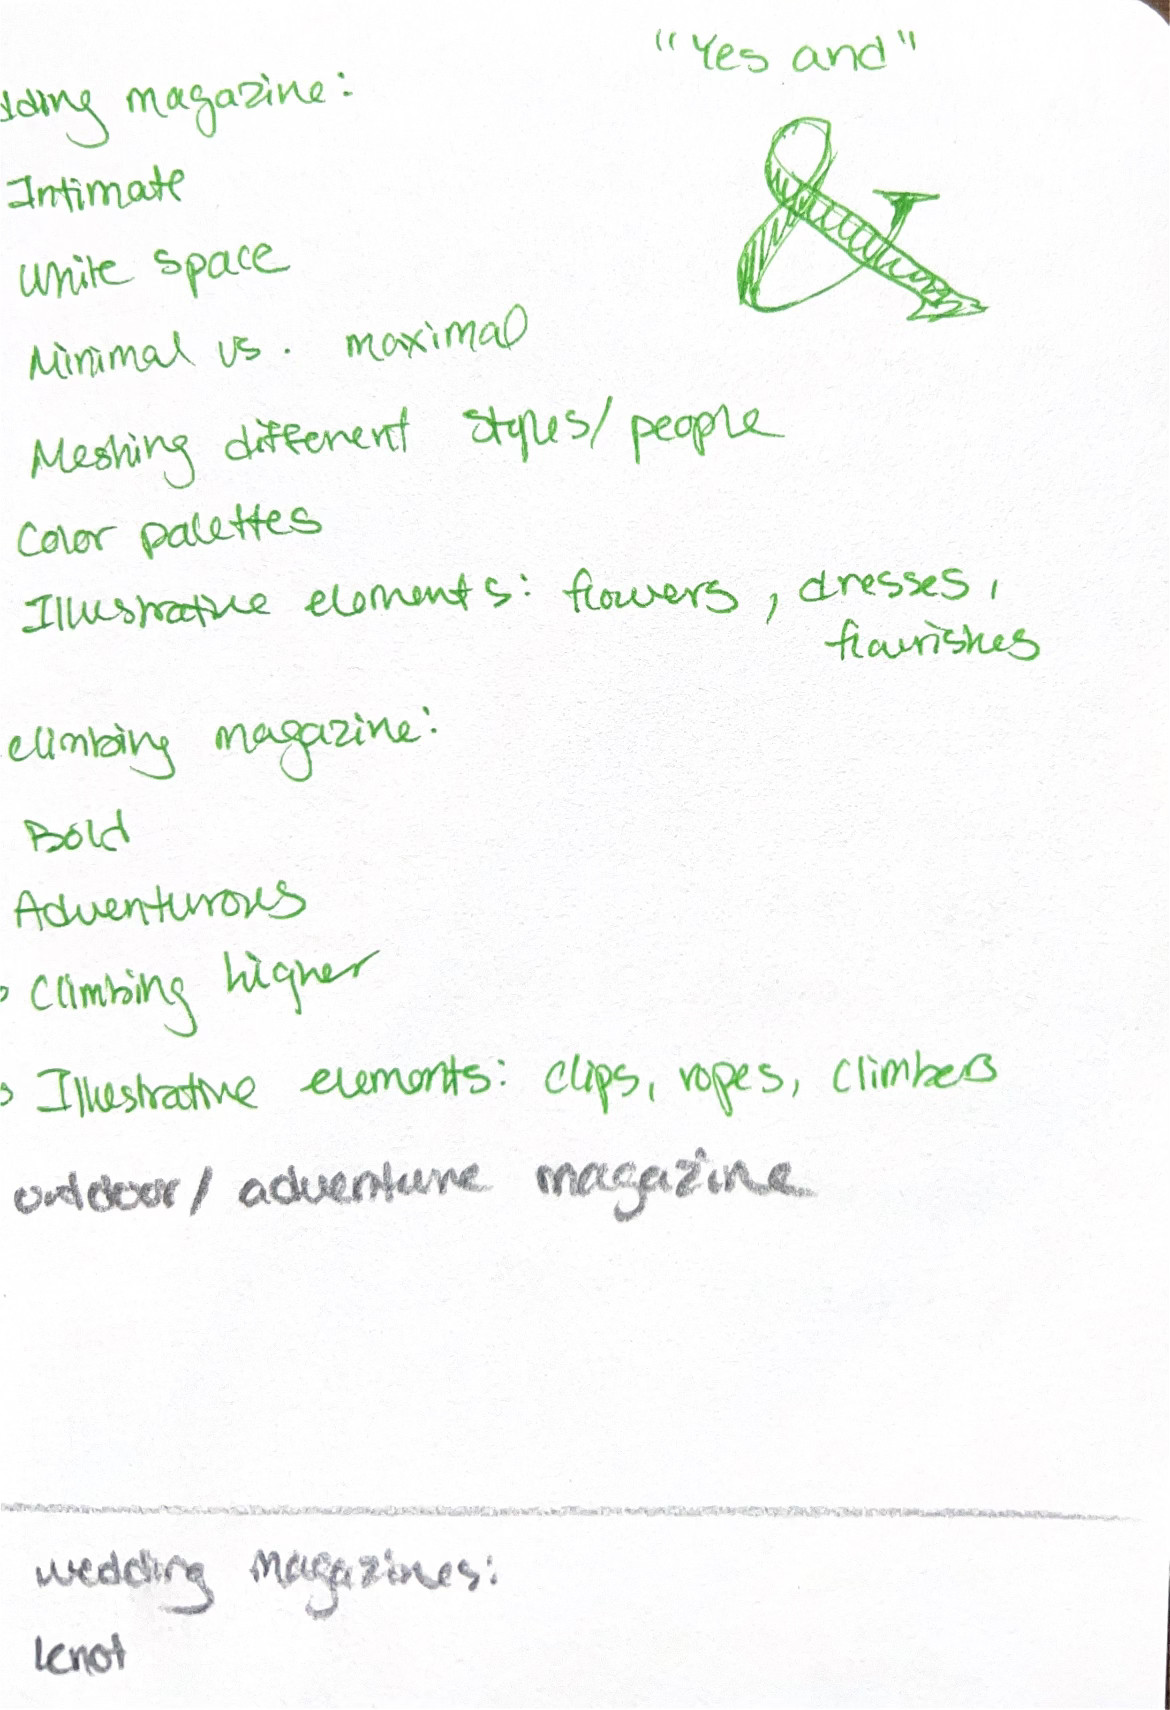 "Yes and"
&
dding magazine:
Intimate
White space
Minimal vs. maximal
Meshing different styles/people
Color palettes
Illustrative elements: flowers, dresses,
flourishes
climbing magazine:
Bold
Adventurous
Climbing higher
Illustrative elements: clips, ropes, climbers
outdoor/ adventure magazine
wedding magazines:
knot